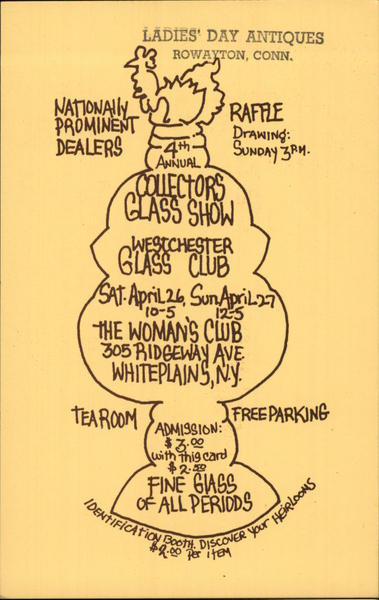 LADIES' DAY ANTIQUES
ROWAYTON, CONN.
NATIONALLY
PROMINENT
DEALERS
RAFFLE
Drawing:
SUNDAY 3P.M.
4th
ANNUAL
COLLECTORS
GLASS SHOW
WESTCHESTER
GLASS CLUB
SAT. April 26, Sun. April 27
10-5 12-5
THE WOMAN'S CLUB
305 RIDGEWAY AVE.
WHITEPLAINS, N.Y.
TEA ROOM
FREE PARKING
ADMISSION:
$3.00
with this card
$2.50
FINE GLASS
OF ALL PERIODS
IDENTIFICATION BOOTH. DISCOVER your HEIRLOOMS
$2.00 Per ITEM